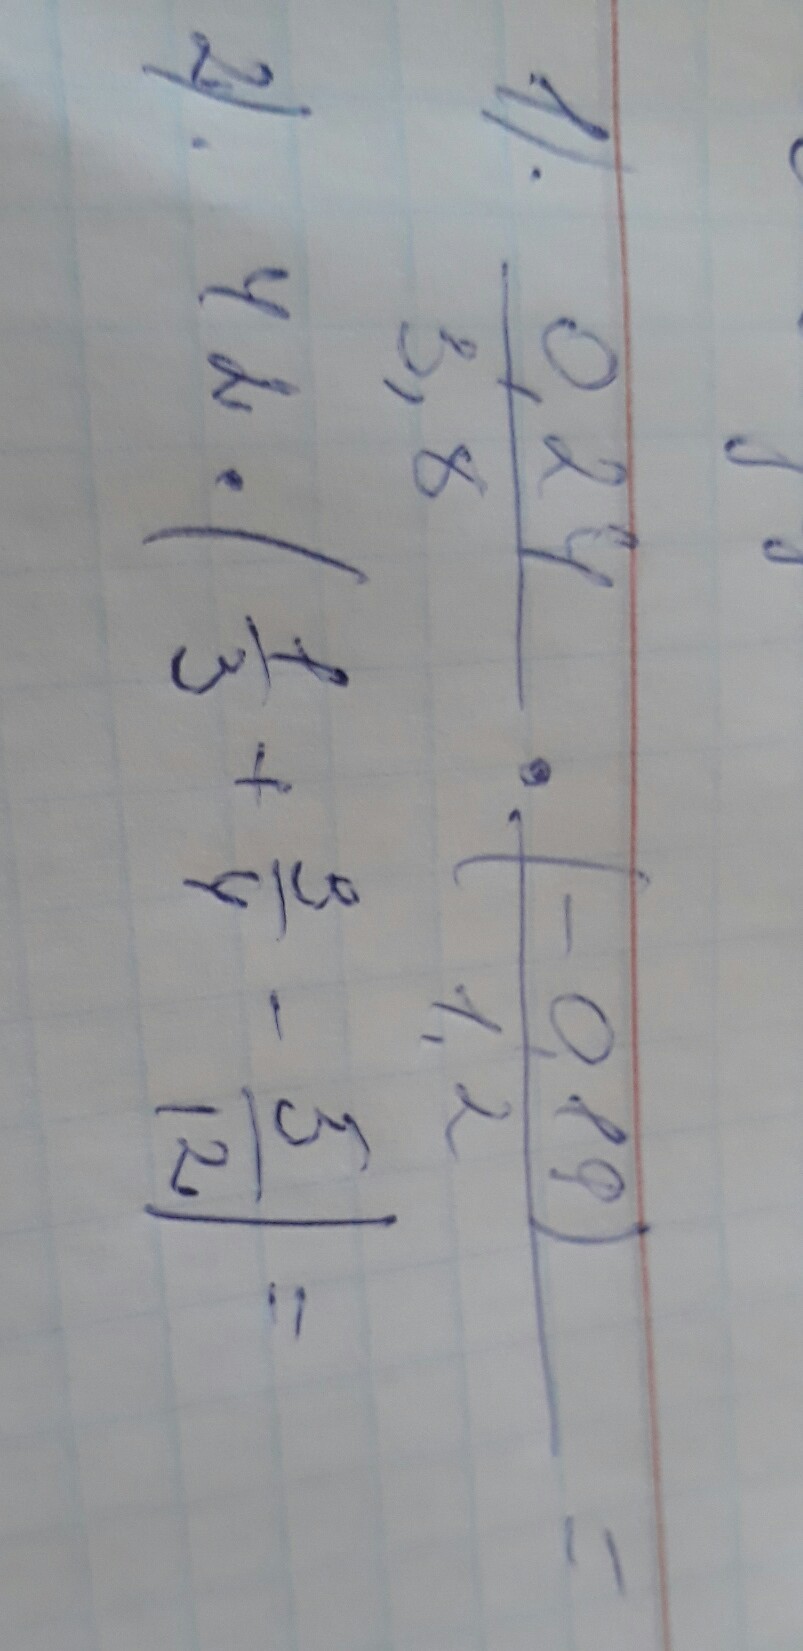 1). 0,24/3,8 · (-0,19)/1,2 =
2). 42 · (1/3 + 3/4 - 5/12) =